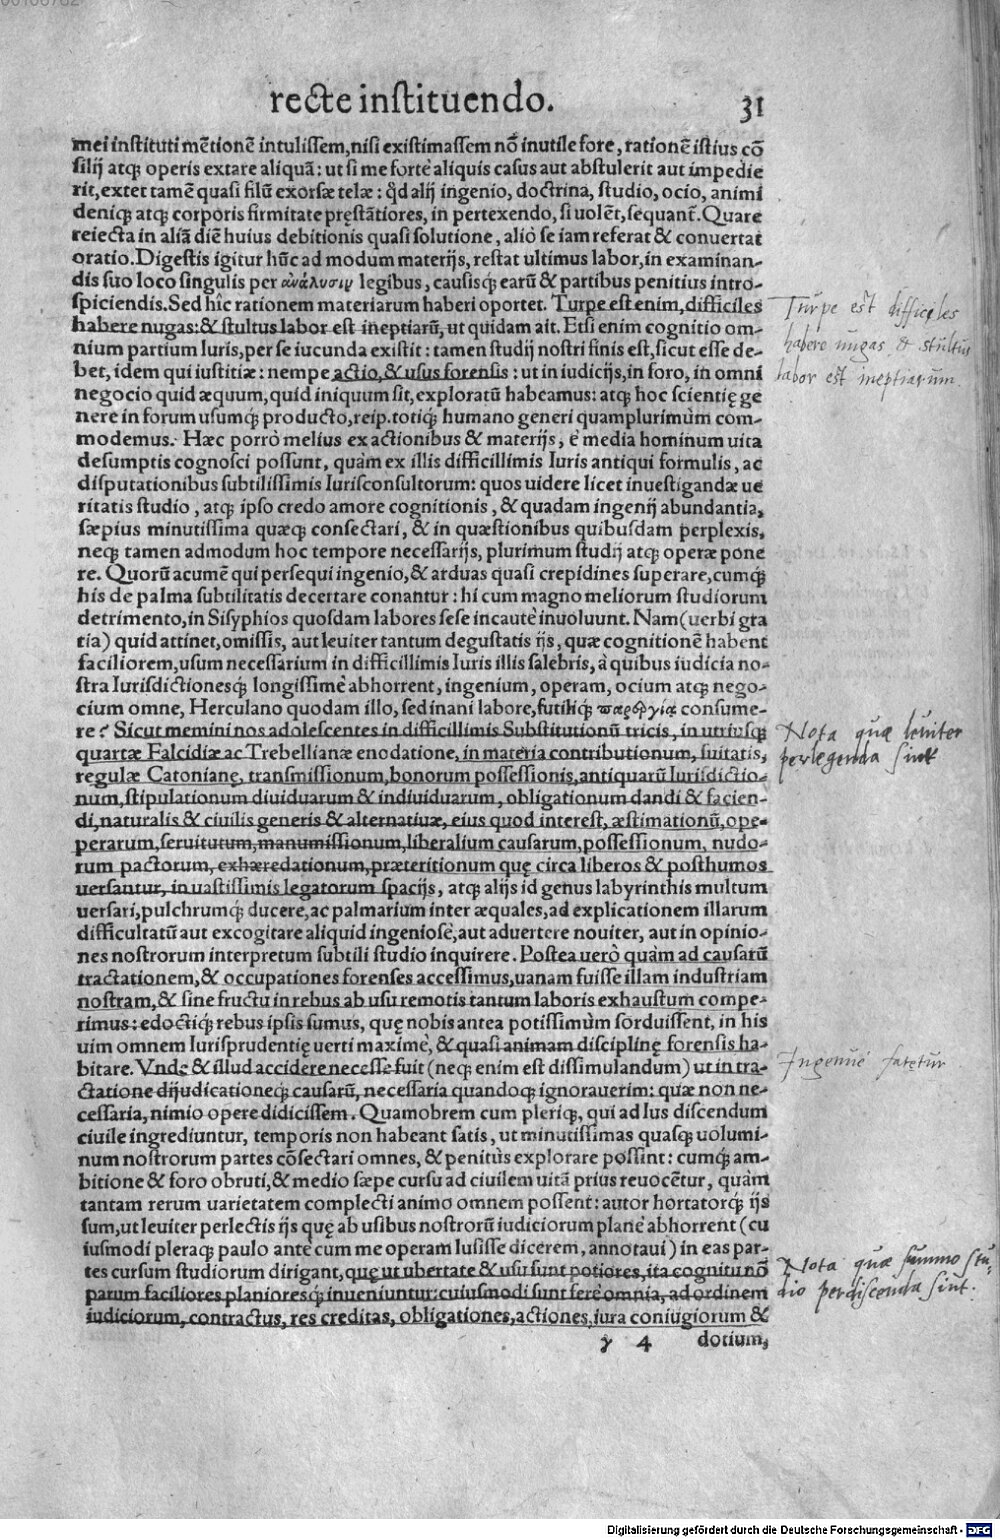 recte instituendo.
31
mei instituti mētionē intulissem, nisi existimassem nō inutile fore, rationē istius cō
silij atq́; operis extare aliquā: ut si me fortè aliquis casus aut abstulerit aut impedie
rit, extet tamē quasi filū exorsæ telæ: q̇d alij ingenio, doctrina, studio, ocio, animi
deniq́; atq́; corporis firmitate pręstātiores, in pertexendo, si uolēt, sequant̄. Quare
reiecta in aliā diē huius debitionis quasi solutione, aliò se iam referat & conuertat
oratio. Digestis igitur hūc ad modum materijs, restat ultimus labor, in examinan-
dis suo loco singulis per ἀνάλυσιν legibus, causisq́; earū & partibus penitius intro-
spiciendis. Sed hîc rationem materiarum haberi oportet. Turpe est enim, difficiles
habere nugas: & stultus labor est ineptiarū, ut quidam ait. Etsi enim cognitio om-
nium partium Iuris, per se iucunda existit: tamen studij nostri finis est, sicut esse de-
bet, idem qui iustitiæ: nempe actio, & usus forensis: ut in iudicijs, in foro, in omni
negocio quid æquum, quid iniquum sit, exploratū habeamus: atq́; hoc scientię ge
nere in forum usumq́; producto, reip. totiq́; humano generi quamplurimùm com-
modemus. Hæc porrò melius ex actionibus & materijs, è media hominum uita
desumptis cognosci possunt, quàm ex illis difficillimis Iuris antiqui formulis, ac
disputationibus subtilissimis Iurisconsultorum: quos uidere licet inuestigandæ ue
ritatis studio, atq́; ipso credo amore cognitionis, & quadam ingenij abundantia,
sæpius minutissima quæq́; consectari, & in quæstionibus quibusdam perplexis,
neq́; tamen admodum hoc tempore necessarijs, plurimum studij atq́; operæ pone
re. Quorū acumē qui persequi ingenio, & arduas quasi crepidines superare, cumq́;
his de palma subtilitatis decertare conantur: hi cum magno meliorum studiorum
detrimento, in Sisyphios quosdam labores sese incautè inuoluunt. Nam (uerbi gra
tia) quid attinet, omissis, aut leuiter tantum degustatis ijs, quæ cognitionē habent
faciliorem, usum necessarium in difficillimis Iuris illis salebris, à quibus iudicia no-
stra Iurisdictionesq́; longissimè abhorrent, ingenium, operam, ocium atq́; nego-
cium omne, Herculano quodam illo, sed inani labore, futiliq́; παρεργίᾳ consume-
re? Sicut memini nos adolescentes in difficillimis Substitutionū tricis, in utriusq́;
quartæ Falcidiæ ac Trebellianæ enodatione, in materia contributionum, suitatis,
regulæ Catonianę, transmissionum, bonorum possessionis, antiquarū Iurisdictio-
num, stipulationum diuiduarum & indiuiduarum, obligationum dandi & facien-
di, naturalis & ciuilis generis & alternatiuæ, eius quod interest, æstimationū, ope-
perarum, seruitutum, manumissionum, liberalium causarum, possessionum, nudo-
rum pactorum, exhæredationum, præteritionum quę circa liberos & posthumos
uersantur, in uastissimis legatorum spacijs, atq́; alijs id genus labyrinthis multum
uersari, pulchrumq́; ducere, ac palmarium inter æquales, ad explicationem illarum
difficultatū aut excogitare aliquid ingeniosè, aut aduertere nouiter, aut in opinio-
nes nostrorum interpretum subtili studio inquirere. Postea uerò quàm ad causarū
tractationem, & occupationes forenses accessimus, uanam fuisse illam industriam
nostram, & sine fructu in rebus ab usu remotis tantum laboris exhaustum compe-
rimus: edoctiq́; rebus ipsis sumus, quę nobis antea potissimùm sorduissent, in his
uim omnem Iurisprudentię uerti maximè, & quasi animam disciplinę forensis ha-
bitare. Vnde & illud accidere necesse fuit (neq́; enim est dissimulandum) ut in tra-
ctatione dijudicationeq́; causarū, necessaria quandoq́; ignorauerim: quæ non ne-
cessaria, nimio opere didicissem. Quamobrem cum pleriq́;, qui ad Ius discendum
ciuile ingrediuntur, temporis non habeant satis, ut minutissimas quasq́; uolumi-
num nostrorum partes cōsectari omnes, & penitùs explorare possint: cumq́; am-
bitione & foro obruti, & medio sæpe cursu ad ciuilem uitā prius reuocētur, quàm
tantam rerum uarietatem complecti animo omnem possent: autor hortatorq́; ijs
sum, ut leuiter perlectis ijs quę ab usibus nostrorū iudiciorum planè abhorrent (cu
iusmodi pleraq́; paulo antè cum me operam lusisse dicerem, annotaui) in eas par-
tes cursum studiorum dirigant, quę ut ubertate & usu sunt potiores, ita cognitu nō
parum faciliores planioresq́; inueniuntur: cuiusmodi sunt ferè omnia, ad ordinem
iudiciorum, contractus, res creditas, obligationes, actiones, iura coniugiorum &
γ 4 dotium,
Turpe est difficiles
habere nugas & stultus
labor est ineptiarum.
Nota quæ leuiter
perlegenda sint
Ingenuè fatetur
Nota quæ summo stu-
dio perdiscenda sint.
Digitalisierung gefördert durch die Deutsche Forschungsgemeinschaft - DFG